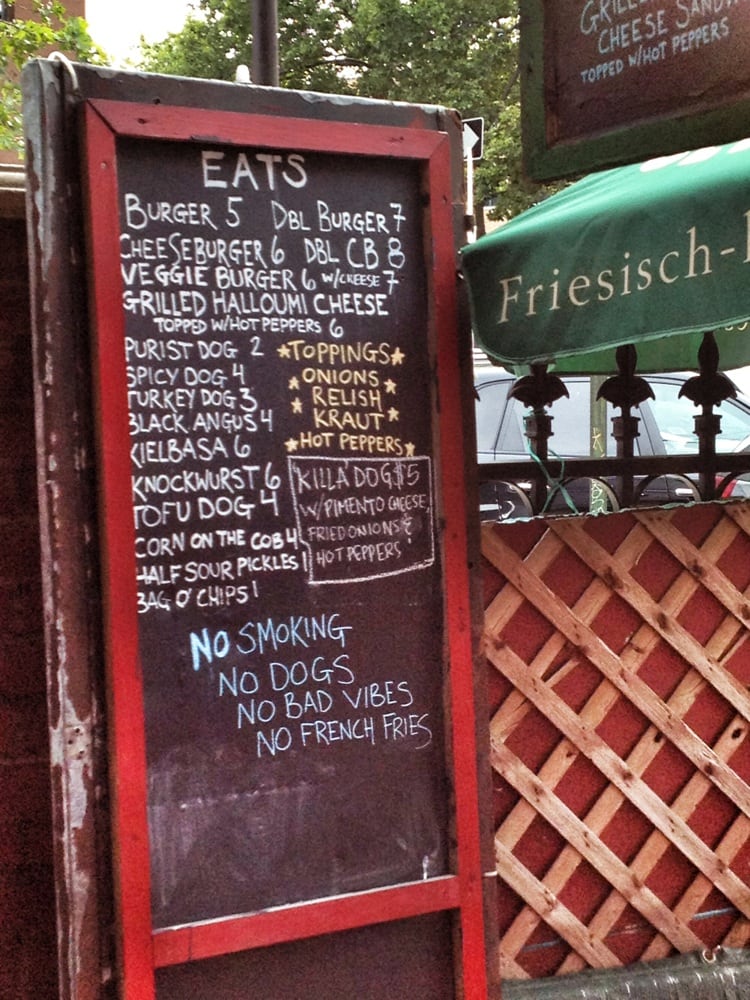 EATS
BURGER 5 DBL BURGER 7
CHEESEBURGER 6 DBL CB 8
VEGGIE BURGER 6 W/CHEESE 7
GRILLED HALLOUMI CHEESE
TOPPED W/HOT PEPPERS 6
PURIST DOG 2
SPICY DOG 4
TURKEY DOG 3
BLACK ANGUS 4
KIELBASA 6
KNOCKWURST 6
TOFU DOG 4
CORN ON THE COB 4
HALF SOUR PICKLES 1
BAG O' CHIPS 1
★TOPPINGS★
★ONIONS★
★RELISH★
KRAUT★
★HOT PEPPERS★
KILLA DOG $5
W/PIMENTO CHEESE,
FRIED ONIONS &
HOT PEPPERS!
NO SMOKING
NO DOGS
NO BAD VIBES
NO FRENCH FRIES
CHEESE
TOPPED W/HOT PEPPERS
Friesisch-